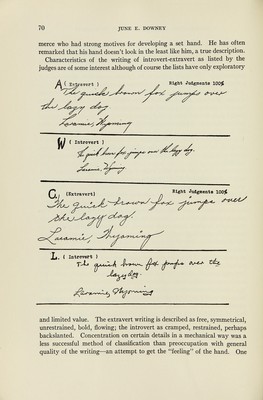 70 JUNE E. DOWNEY
merce who had strong motives for developing a set hand. He has often
remarked that his hand doesn't look in the least like him, a true description.
Characteristics of the writing of introvert-extravert as listed by the
judges are of some interest although of course the lists have only exploratory
A (Extrovert) Right Judgments 100%
The quick brown fox jumps over
the lazy dog
Laramie, Wyoming
W (Introvert)
The quick brown fox jumps over the lazy dog
Laramie, Wyoming
G. (Extravert) Right Judgments 100%
The quick brown fox jumps over
the lazy dog.
Laramie, Wyoming
L. (Introvert)
The quick brown fox jumps over the
lazy dog.
Laramie, Wyoming
and limited value. The extravert writing is described as free, symmetrical,
unrestrained, bold, flowing; the introvert as cramped, restrained, perhaps
backslanted. Concentration on certain details in a mechanical way was a
less successful method of classification than preoccupation with general
quality of the writing—an attempt to get the "feeling" of the hand. One